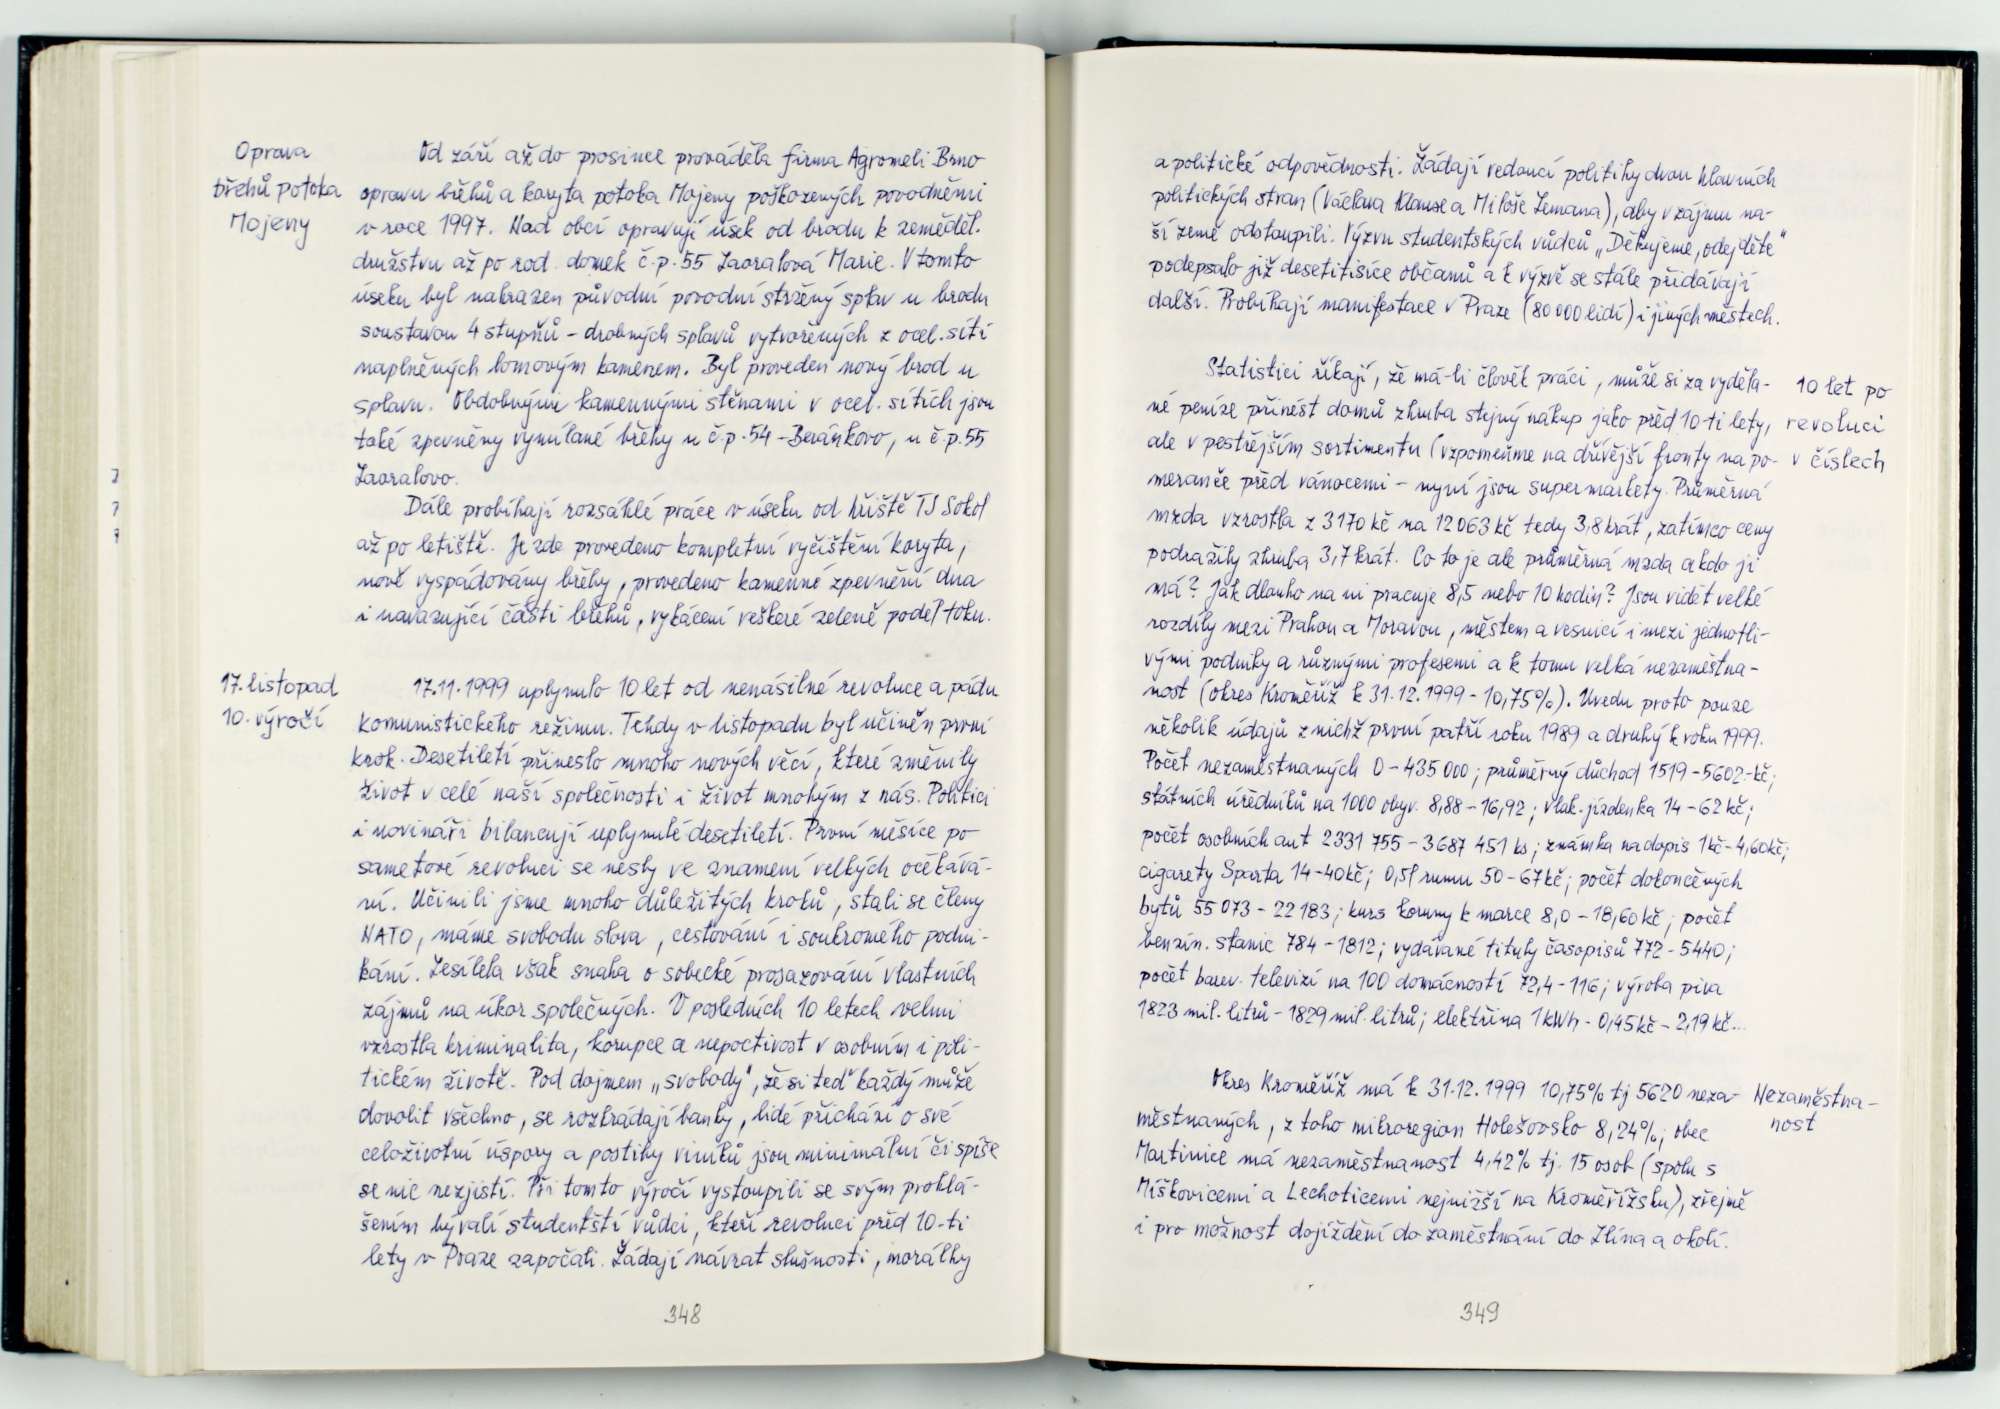 Oprava
břehů potoka
Mojeny
Od září až do prosince prováděla firma Agromeli Brno
opravu břehů a koryta potoka Mojeny poškozených povodněmi
v roce 1997. Nad obcí opravují úsek od brodu k zeměděl.
družstvu až po rod. domek č.p. 55 Zaoralová Marie. V tomto
úseku byl nahrazen původní povodní stržený splav u brodu
soustavou 4 stupňů - drobných splavů vytvořených z ocel. sítí
naplněných lomovým kamenem. Byl proveden nový brod u
splavu. Obdobnými kamennými stěnami v ocel. sítích jsou
také zpevněny vymílané břehy u č.p. 54 - Beránkovo, u č.p. 55
Zaoralovo.
Dále probíhají rozsáhlé práce v úseku od hřiště TJ Sokol
až po letiště. Je zde provedeno kompletní vyčištění koryta,
nově vyspádovány břehy, provedeno kamenné zpevnění dna
i navazující části břehů, vykácení veškeré zeleně podél toku.
17. listopad
10. výročí
17.11.1999 uplynulo 10 let od nenásilné revoluce a pádu
komunistického režimu. Tehdy v listopadu byl učiněn první
krok. Desetiletí přineslo mnoho nových věcí, které změnily
život v celé naší společnosti i život mnohým z nás. Politici
i novináři bilancují uplynulé desetiletí. První měsíce po
sametové revoluci se nesly ve znamení velkých očekává-
ní. Učinili jsme mnoho důležitých kroků, stali se členy
NATO, máme svobodu slova, cestování i soukromého podni-
kání. Zesílela však snaha o sobecké prosazování vlastních
zájmů na úkor společných. V posledních 10 letech velmi
vzrostla kriminalita, korupce a nepoctivost v osobním i poli-
tickém životě. Pod dojmem „svobody“, že si teď každý může
dovolit všechno, se rozkrádají banky, lidé přichází o své
celoživotní úspory a postihy viníků jsou minimální či spíše
se nic nezjistí. Při tomto výročí vystoupili se svým prohlá-
šením bývalí studentští vůdci, kteří revoluci před 10-ti
lety v Praze započali. Žádají návrat slušnosti, morálky
348
a politické odpovědnosti. Žádají vedoucí politiky dvou hlavních
politických stran (Václava Klause a Miloše Zemana), aby v zájmu na-
ší země odstoupili. Výzvu studentských vůdců „Děkujeme, odejděte“
podepsalo již desetitisíce občanů a k výzvě se stále přidávají
další. Probíhají manifestace v Praze (80 000 lidí) i jiných městech.
Statistici říkají, že má-li člověk práci, může si za vyděla-
né peníze přinést domů zhruba stejný nákup jako před 10-ti lety,
ale v pestřejším sortimentu (vzpomeňme na dřívější fronty na po-
meranče před vánocemi - nyní jsou supermarkety. Průměrná
mzda vzrostla z 3170 kč na 12 063 kč tedy 3,8 krát, zatímco ceny
podražily zhruba 3,7 krát. Co to je ale průměrná mzda a kdo ji
má? Jak dlouho na ni pracuje 8,5 nebo 10 hodin? Jsou vidět velké
rozdíly mezi Prahou a Moravou, městem a vesnicí i mezi jednotli-
vými podniky a různými profesemi a k tomu velká nezaměstna-
nost (okres Kroměříž k 31.12.1999 - 10,75%). Uvedu proto pouze
několik údajů z nichž první patří roku 1989 a druhý k roku 1999.
Počet nezaměstnaných 0 - 435 000; průměrný důchod 1519 - 5602.-kč;
státních úředníků na 1000 obyv. 8,88 - 16,92; vlak. jízdenka 14 - 62 kč;
počet osobních aut 2331 755 - 3687 451 ks; známka na dopis 1kč - 4,60kč;
cigarety Sparta 14 - 40kč; 0,5l rumu 50 - 67kč; počet dokončených
bytů 55 073 - 22 183; kurs koruny k marce 8,0 - 18,60 kč; počet
benzín. stanic 784 - 1812; vydávané tituly časopisů 772 - 5440;
počet barev. televizí na 100 domácností 72,4 - 116; výroba piva
1823 mil. litrů - 1829 mil. litrů; elektřina 1 kWh - 0,45kč - 2,19 kč...
10 let po
revoluci
v číslech
Okres Kroměříž má k 31.12.1999 10,75% tj 5620 neza-
městnaných, z toho mikroregion Holešovsko 8,24%; obec
Martinice má nezaměstnanost 4,42% tj. 15 osob (spolu s
Míškovicemi a Lechoticemi nejnižší na Kroměřížsku), zřejmě
i pro možnost dojíždění do zaměstnání do Zlína a okolí.
Nezaměstna-
nost
349